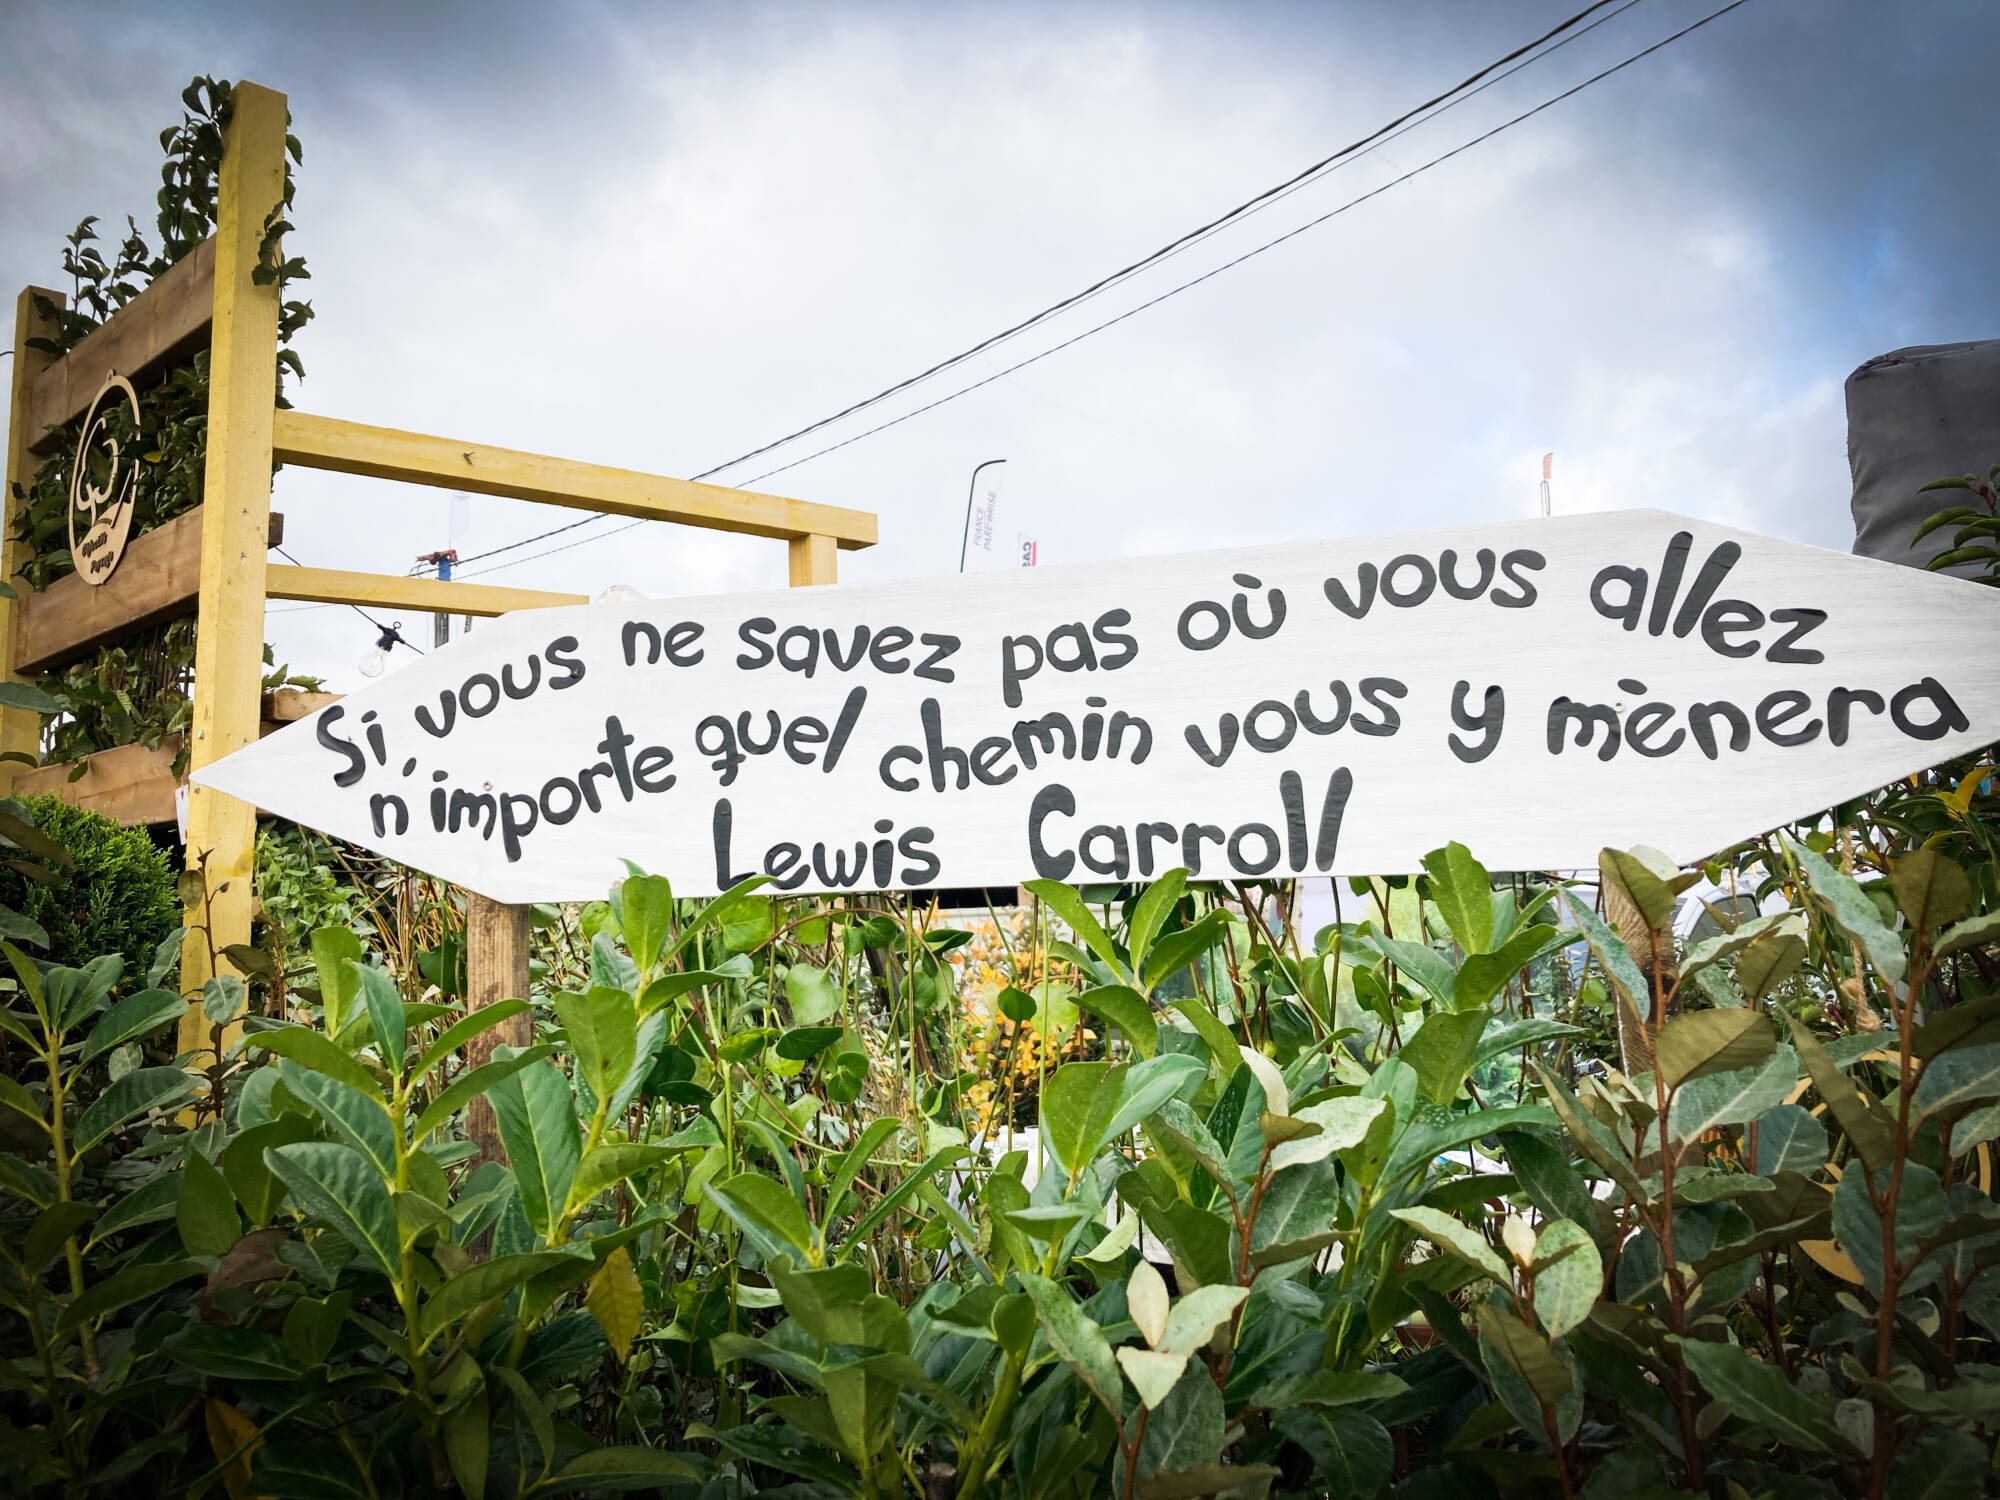 Si, vous ne savez pas où vous allez
n'importe quel chemin vous y mènera
Lewis Carroll
FRANCE
PARE-BRISE